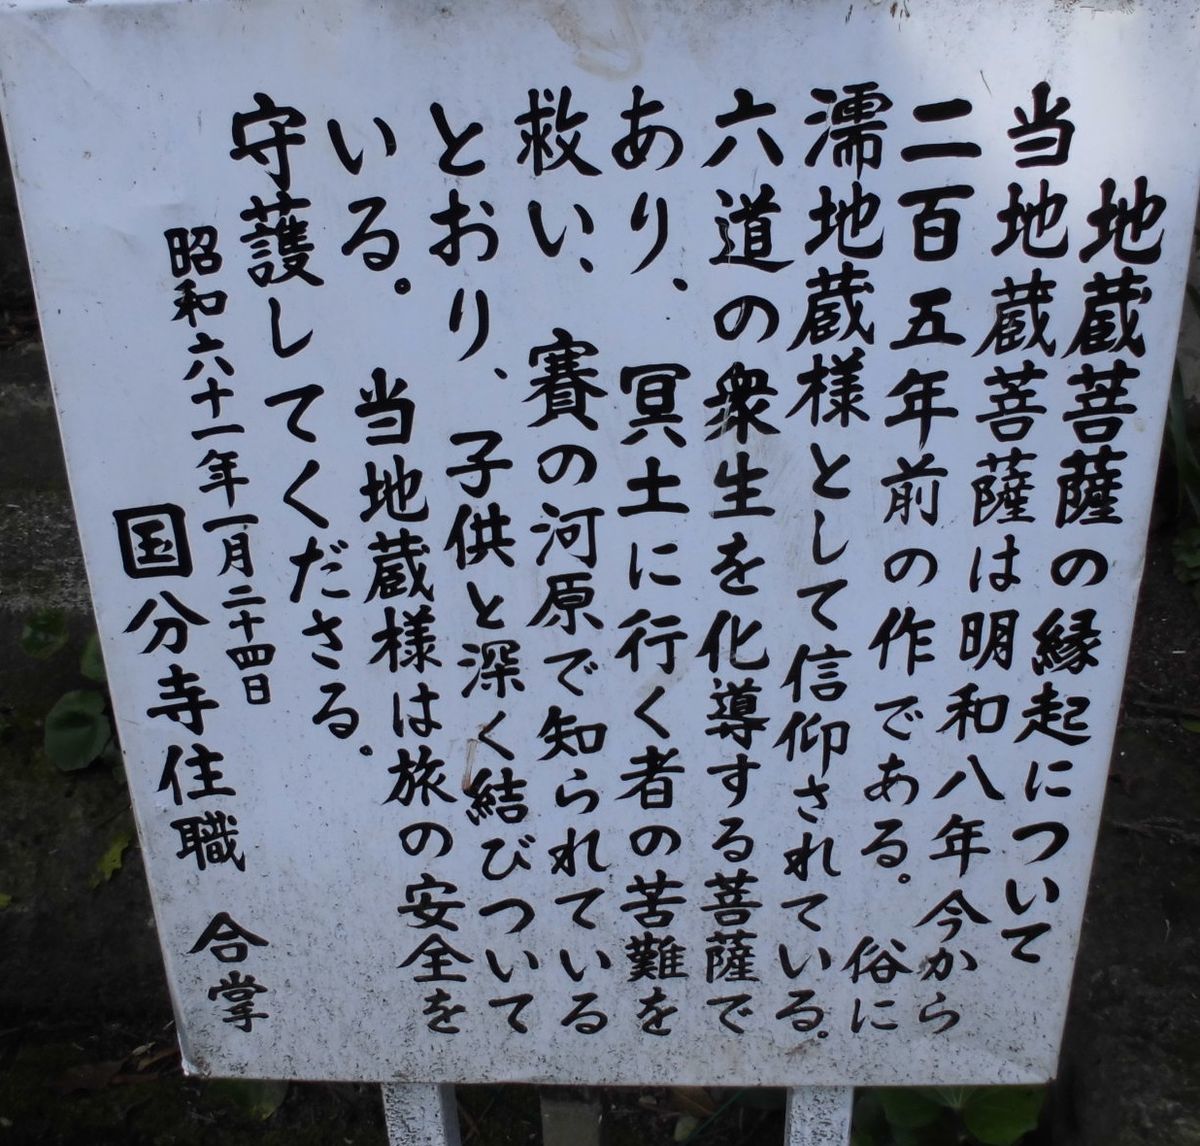 地蔵菩薩の縁起について
当地蔵菩薩は明和八年今から
二百五年前の作である。俗に
濡地蔵様として信仰されている。
六道の衆生を化導する菩薩で
あり、冥土に行く者の苦難を
救い、賽の河原で知られている
とおり、子供と深く結びついて
いる。当地蔵様は旅の安全を
守護してくださる。
昭和六十一年一月二十四日
国分寺住職 合掌